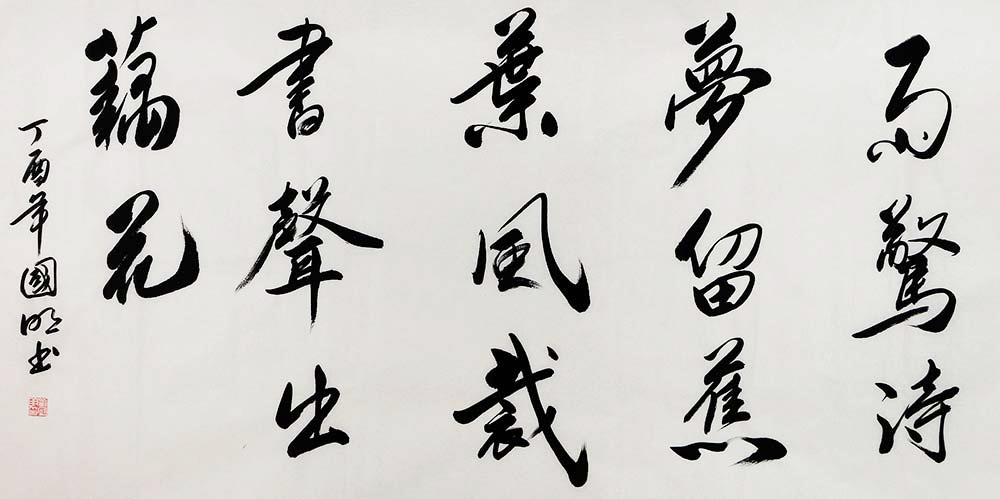 雨驚詩
夢留蕉
葉風裁
書聲出
藕花
丁酉年國明书